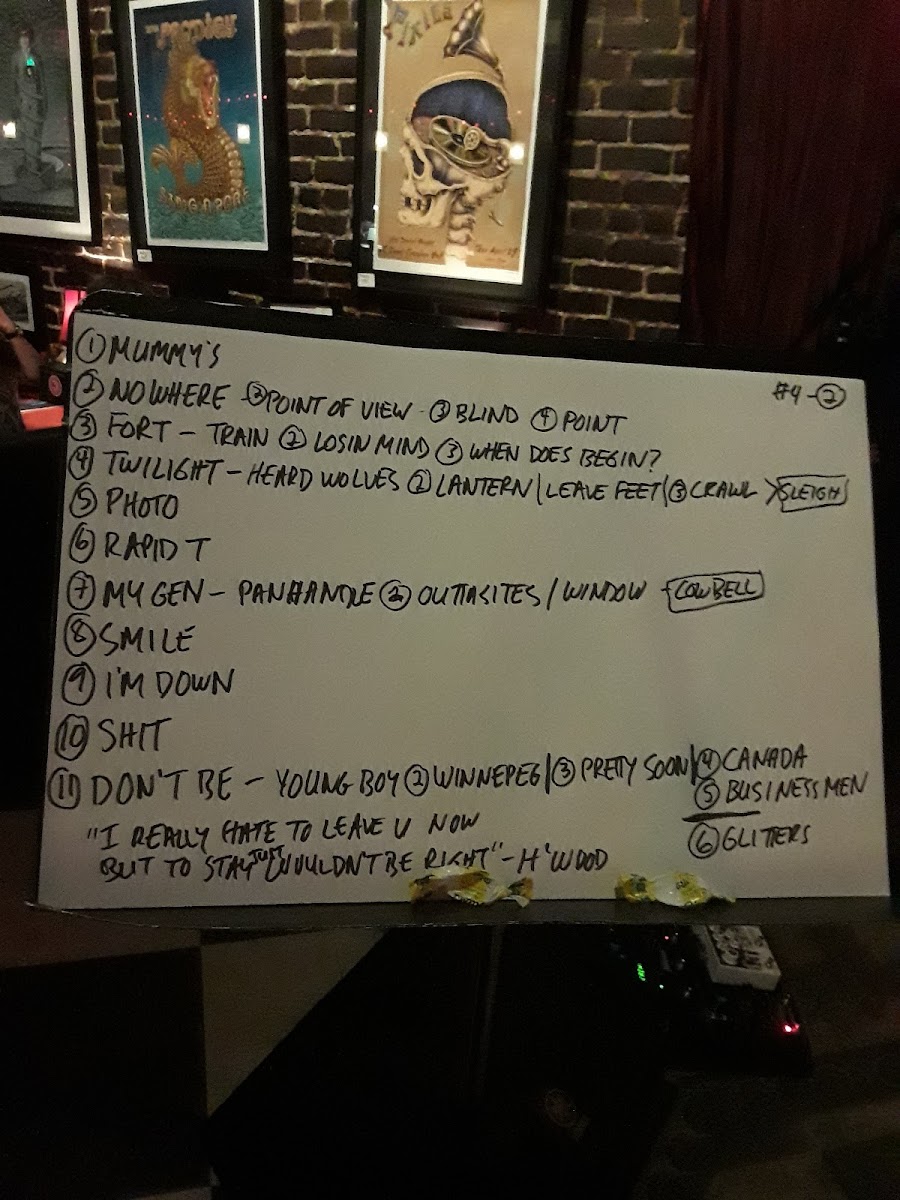 THE PRODIGY
SINGAPORE
PIXIES
#4-②
① MUMMY'S
② NOWHERE - ② POINT OF VIEW - ③ BLIND ④ POINT
③ FORT - TRAIN ② LOSIN MIND ③ WHEN DOES BEGIN?
④ TWILIGHT - HEARD WOLVES ② LANTERN/LEAVE FEET/③ CRAWL > SLEIGH
⑤ PHOTO
⑥ RAPID T
⑦ MY GEN - PANHANDLE ② OUTTASITES / WINDOW - COWBELL
⑧ SMILE
⑨ I'M DOWN
⑩ SHIT
⑪ DON'T BE - YOUNG BOY ② WINNEPEG/③ PRETTY SOON/④ CANADA
⑤ BUSINESSMEN
⑥ GLITTERS
"I REALLY HATE TO LEAVE U NOW
BUT TO STAY JUST WOULDN'T BE RIGHT" - H'WOOD